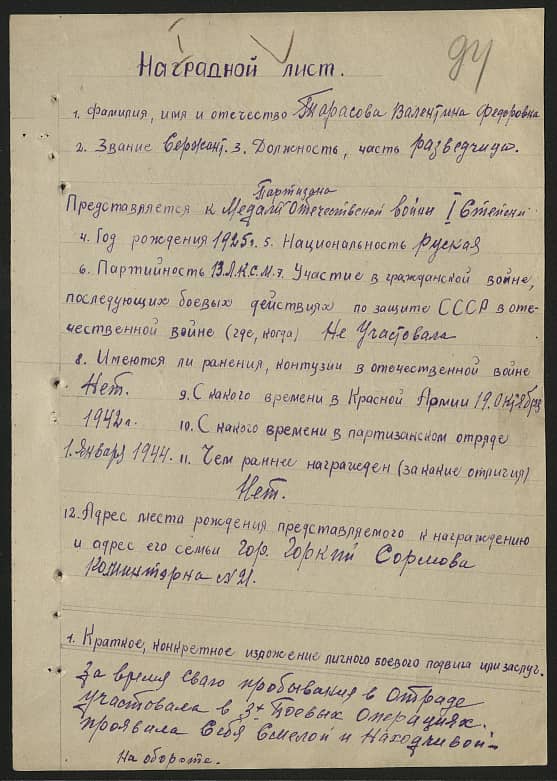 94
Наградной лист.
1. Фамилия, имя и отечество Тарасова Валентина Федоровна
2. Звание Сержант. 3. Должность, часть разведчица.
Партизана
Представляется к Медали Отечественной войны I Степени
4. Год рождения 1925 г. 5. Национальность Руская
6. Партийность В.Л.К.С.М. 7. Участие в гражданской войне,
последующих боевых действиях по защите СССР в оте-
чественной войне (где, когда) Не Участовала
8. Имеются ли ранения, контузии в отечественной войне
Нет. 9. С какого времени в Красной Армии 19. Октября
1942 г. 10. С какого времени в партизанском отряде
1. Января 1944. 11. Чем раннее награжден (за какие отличия)
Нет.
12. Адрес места рождения представляемого к награждению
и адрес его семьи Гор. Горкий Сормова
Коминтерна №21.
1. Краткое, конкретное изложение личного боевого подвига или заслуг.
За время сваго пробывания в Отраде
участовала в 3х Боевых Операциях.
проявала Себя Смелой и Находчивой-
На обороте.